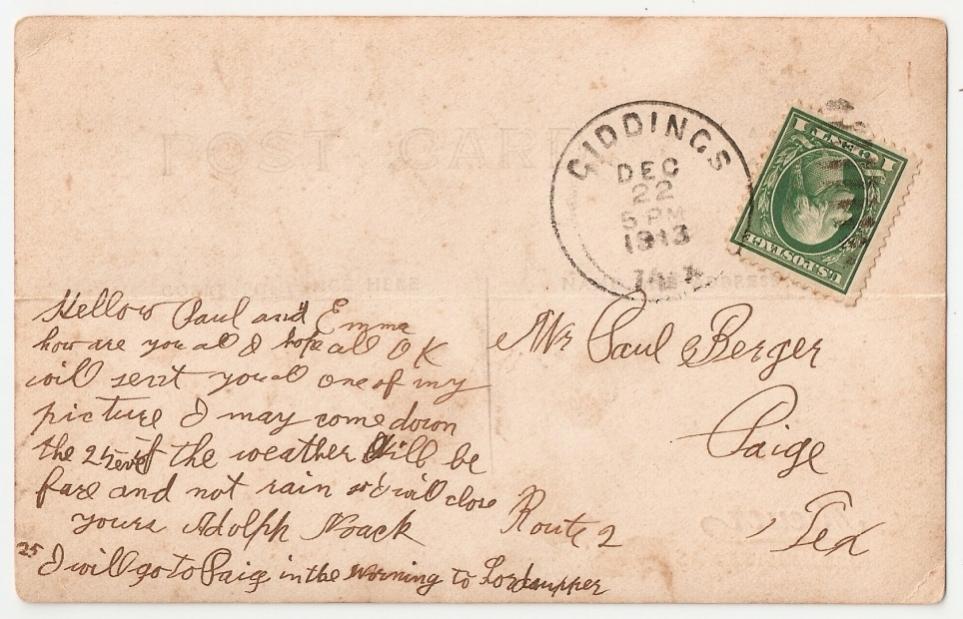 POST CARD
GIDDINGS
DEC
22
5 PM
1913
TEX
1 CENT 1
U.S. POSTAGE
Hellow Paul and Emma
how are you all I hope all OK
will sent you all one of my
picture I may come down
the 24 if the weather Will be
fare and not rain so I will close
yours Adolph Noack
25 I will go to Paige in the Morning to Lordsupper
Mr Paul Berger
Paige
Route 2, Tex